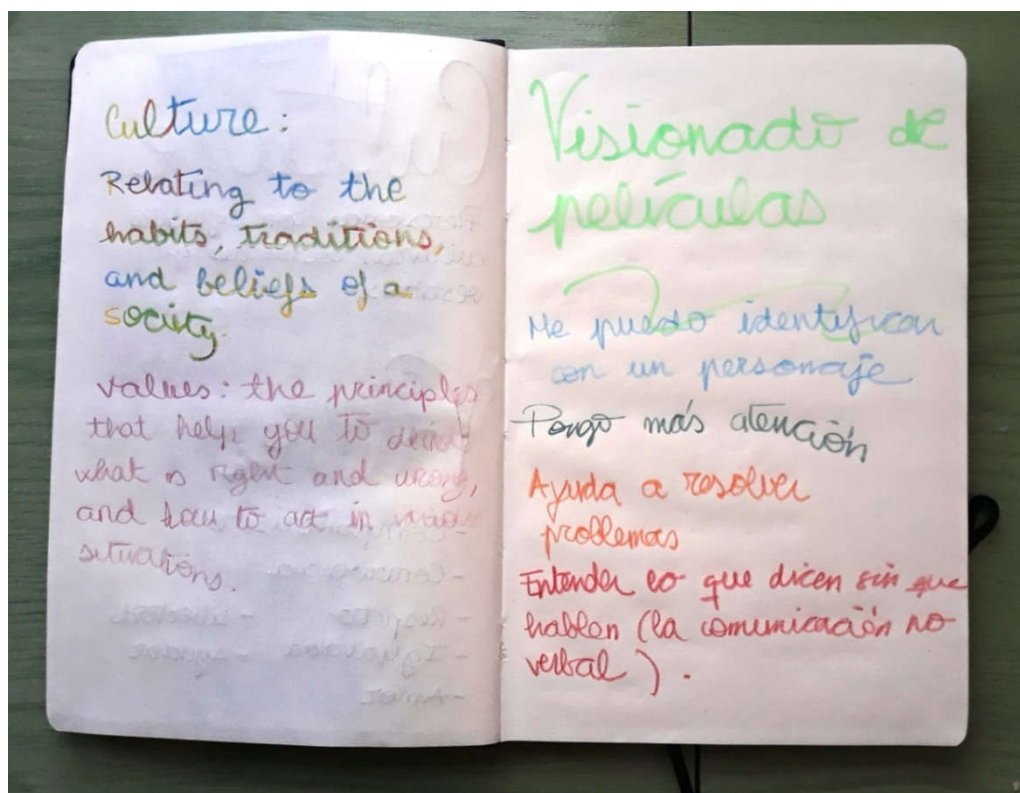 Culture:
Relating to the
habits, traditions,
and beliefs of a
society.
values: the principles
that help you to decide
what is right and wrong,
and how to act in various
situations.
Visionado de
películas
Me puedo identificar
con un personaje
Pongo más atención
Ayuda a resolver
problemas
Entender lo que dicen sin que
hablen (la comunicación no
verbal).